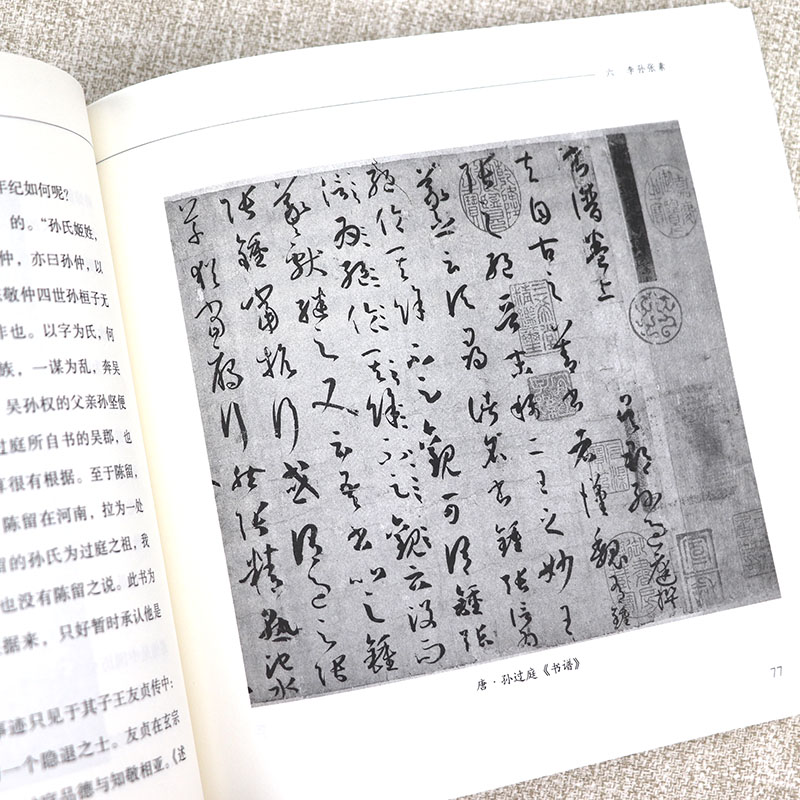 年纪如何呢？
的。“孙氏姬姓，
仲，亦曰孙仲，以
敬仲四世孙桓子无
也。以字为氏，何
族，一谋为乱，奔吴
吴孙权的父亲孙坚便
过庭所自书的吴郡，也
很有根据。至于陈留，
陈留在河南，拉为一处
的孙氏为过庭之祖，我
也没有陈留之说。此书为
据来，只好暂时承认他是
事迹只见于其子王友贞传中：
一个隐退之士。友贞在玄宗
品德与知敬相亚。（述
六 李孙张素
書譜卷上 吳郡孫過庭撰
夫自古之善書者漢魏有鍾
張之絕晉末稱二王之妙王
羲之云頃尋諸名書鍾張信爲
絕倫其餘不足觀可謂鍾張
云沒而
羲獻繼之又云吾書比之鍾
張鍾當抗行或謂過之張
草猶當雁行然張精熟池水
唐·孙过庭《书谱》
77